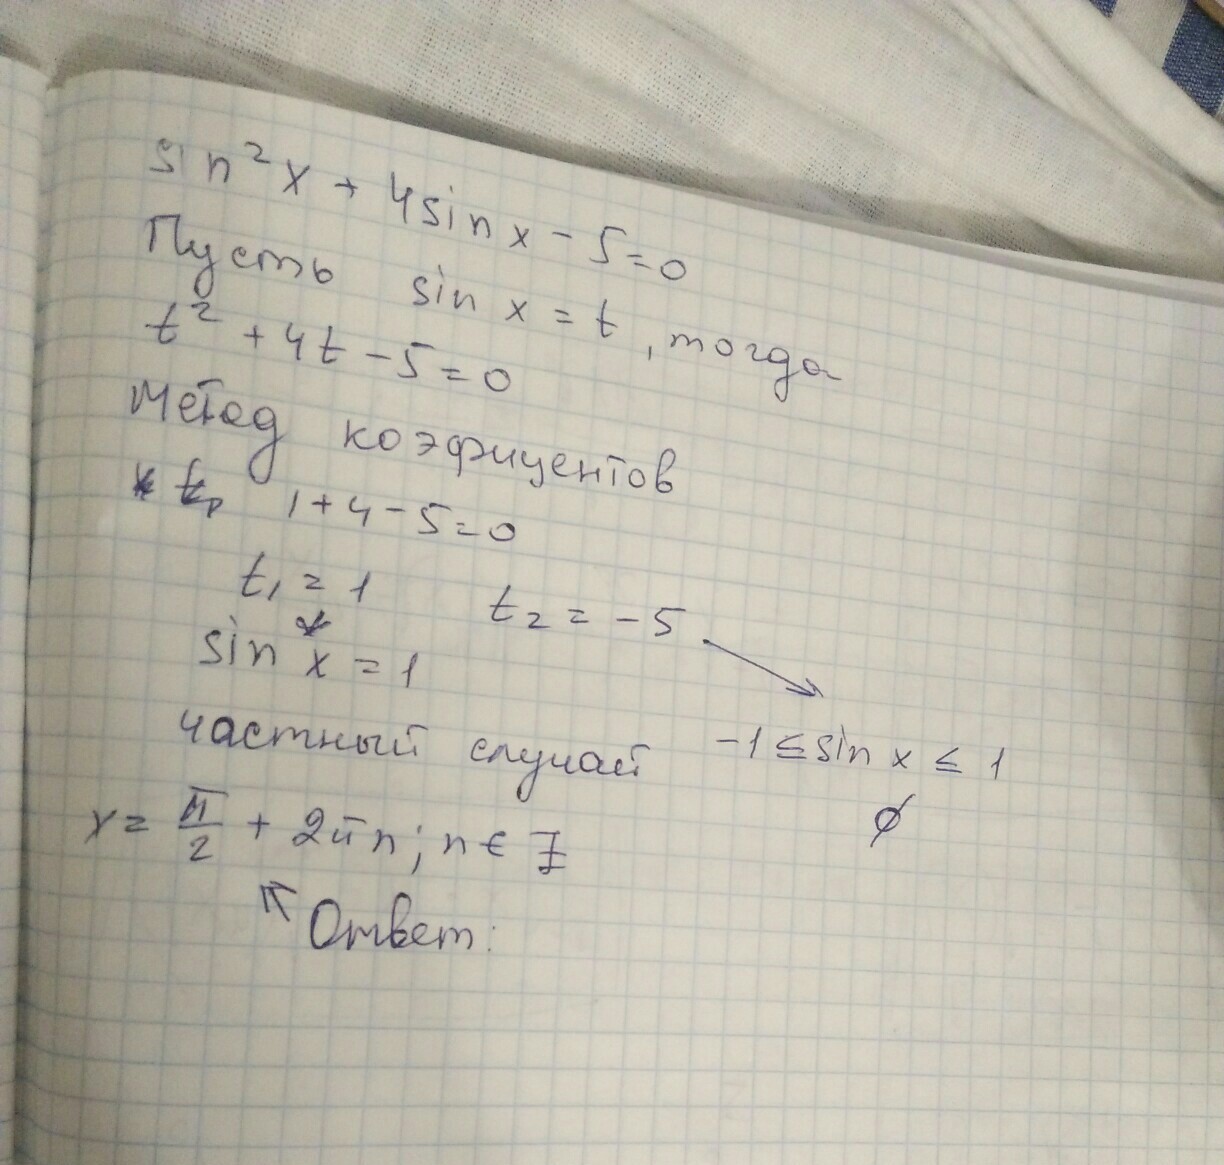 sin²x + 4sin x - 5 = 0
Пусть sin x = t, тогда
t² + 4t - 5 = 0
Метод коэфицентов
1 + 4 - 5 = 0
t₁ = 1 t₂ = -5
sin x = 1
частный случай -1 ≤ sin x ≤ 1
x = π/2 + 2πn; n ∈ Z ∅
Ответ: